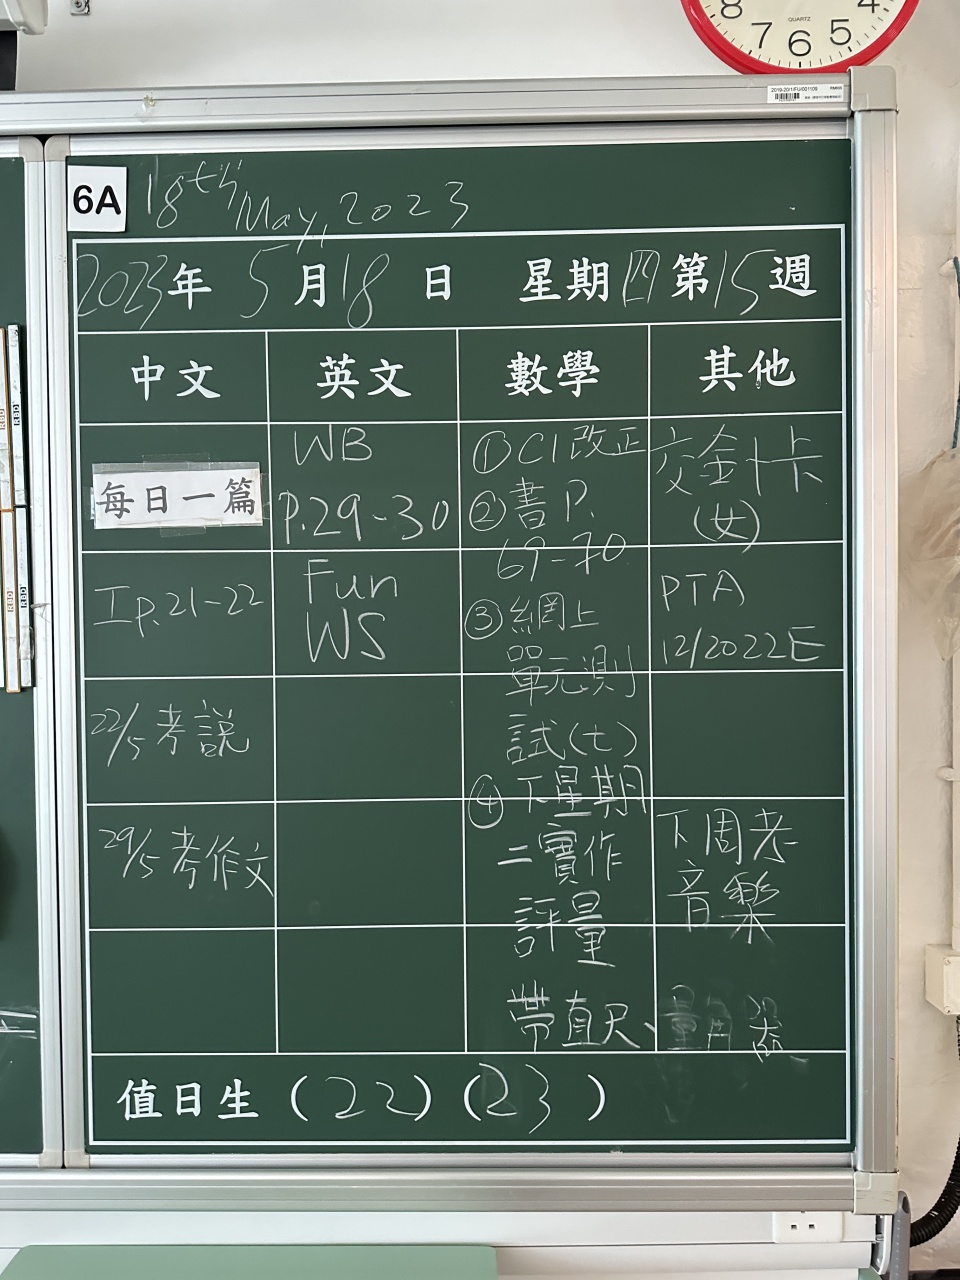 8 7 6 5 4
QUARTZ
2019-20/1/FU/001109
6A
18th May, 2023
2023年 5月18日 星期四 第15週
中文 英文 數學 其他
每日一篇
I P.21-22
22/5 考説
29/5 考作文
WB
P.29-30
Fun
WS
①C1改正
②書P.
69-70
③網上
單元測
試(七)
④下星期
二實作
評量
帶直尺、量角器
交針卡
(女)
PTA
12/2022E
下周考
音樂
值日生 (22) (23)
RBD
RBD
RBD
RBD